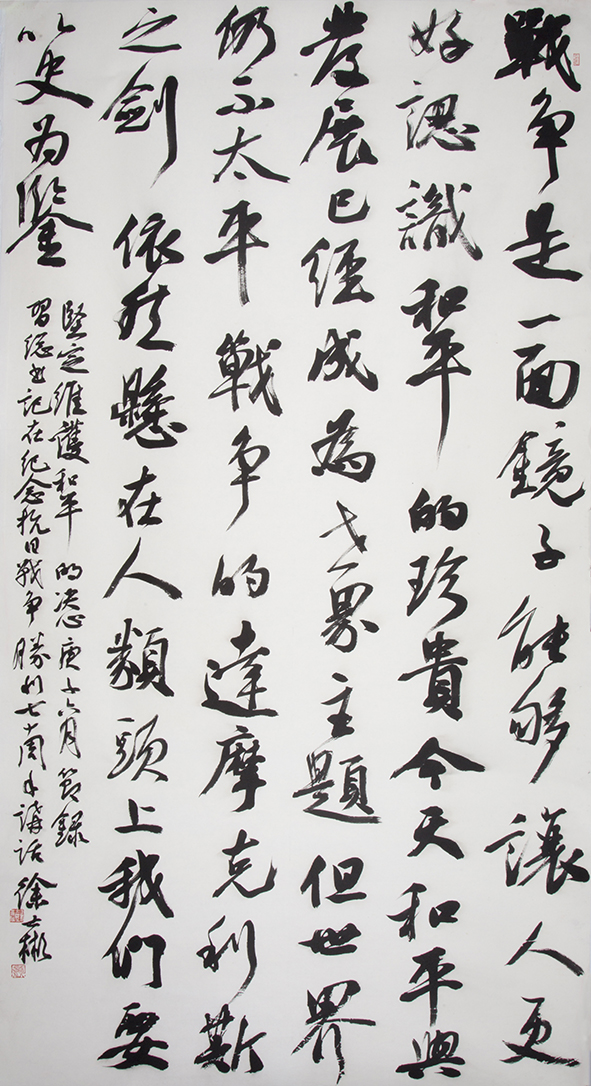 戰争是一面鏡子能够讓人更
好認識和平的珍貴今天和平與
發展已經成為世界主題但世界
仍不太平戰争的達摩克利斯
之劍依然懸在人類頭上我們要
以史为鑒
堅定維護和平的决心庚子六月節録
習總书記在纪念抗日戰争勝利七十周年講話徐士彬